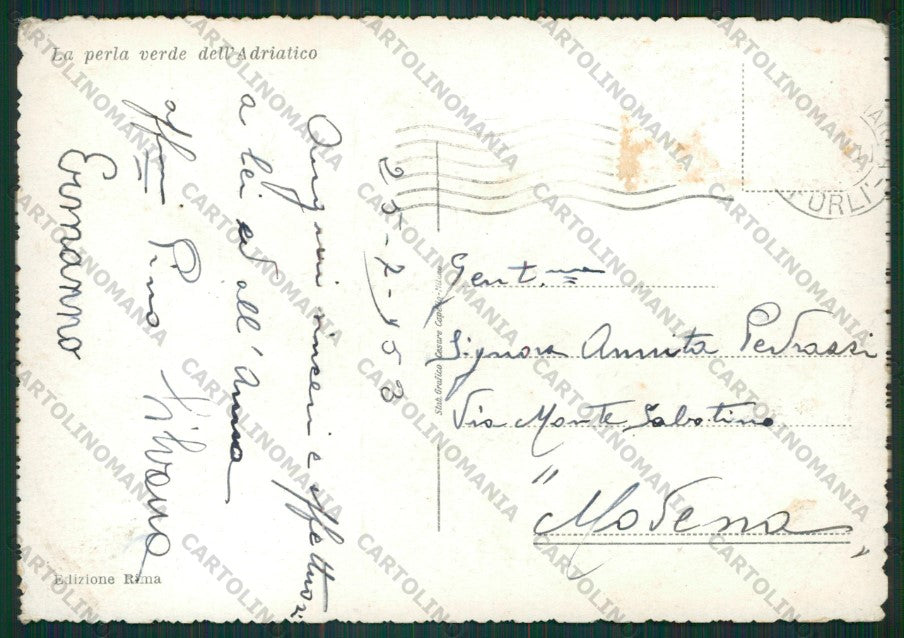 La perla verde dell'Adriatico
25-2-953
Auguri sinceri e affettuosi
a lei ed all'Anna
aff.mi Pino Silvana
Ermanno
Gent.ma
Signora Annita Pedrassi
Via Monte Sabotino
Modena
Edizione Rima
Stab. Grafico Cesare Capello - Milano
FORLI'
CARTOLINOMANIA